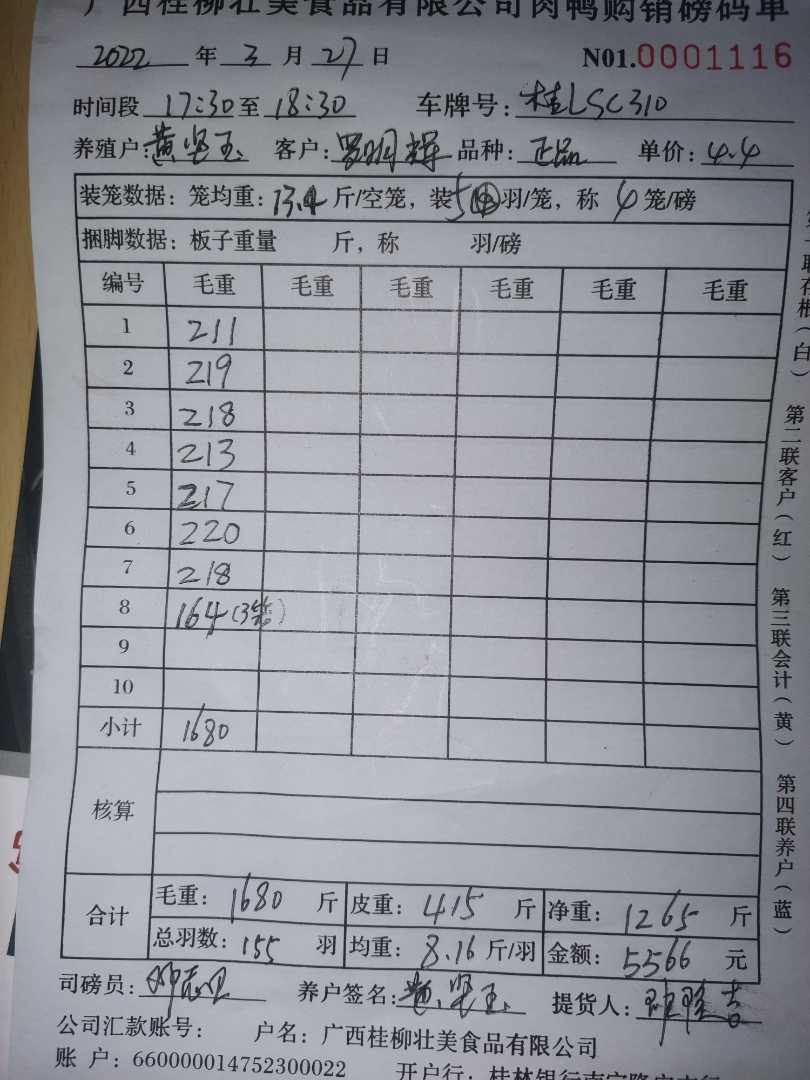 广西桂柳壮美食品有限公司肉鸭购销磅码单
2022 年 3 月 27 日 N01.0001116
时间段 17:30 至 18:30 车牌号: 桂LSC310
养殖户: 黄坚玉 客户: 罗明辉 品种: 正品 单价: 4.4
装笼数据: 笼均重: 13.4 斤/空笼, 装 5 羽/笼, 称 4 笼/磅
捆脚数据: 板子重量 斤, 称 羽/磅
编号 毛重 毛重 毛重 毛重 毛重 毛重
1 211
2 219
3 218
4 213
5 217
6 220
7 218
8 164 (3笼)
9
10
小计 1680
核算
合计 毛重: 1680 斤 皮重: 415 斤 净重: 1265 斤
总羽数: 155 羽 均重: 8.16 斤/羽 金额: 5566 元
司磅员: 养户签名: 黄坚玉 提货人:
公司汇款账号: 户名: 广西桂柳壮美食品有限公司
账 户: 660000014752300022 开户行: 桂林银行南宁隆安支行
联存根(白) 第二联客户(红) 第三联会计(黄) 第四联养户(蓝)